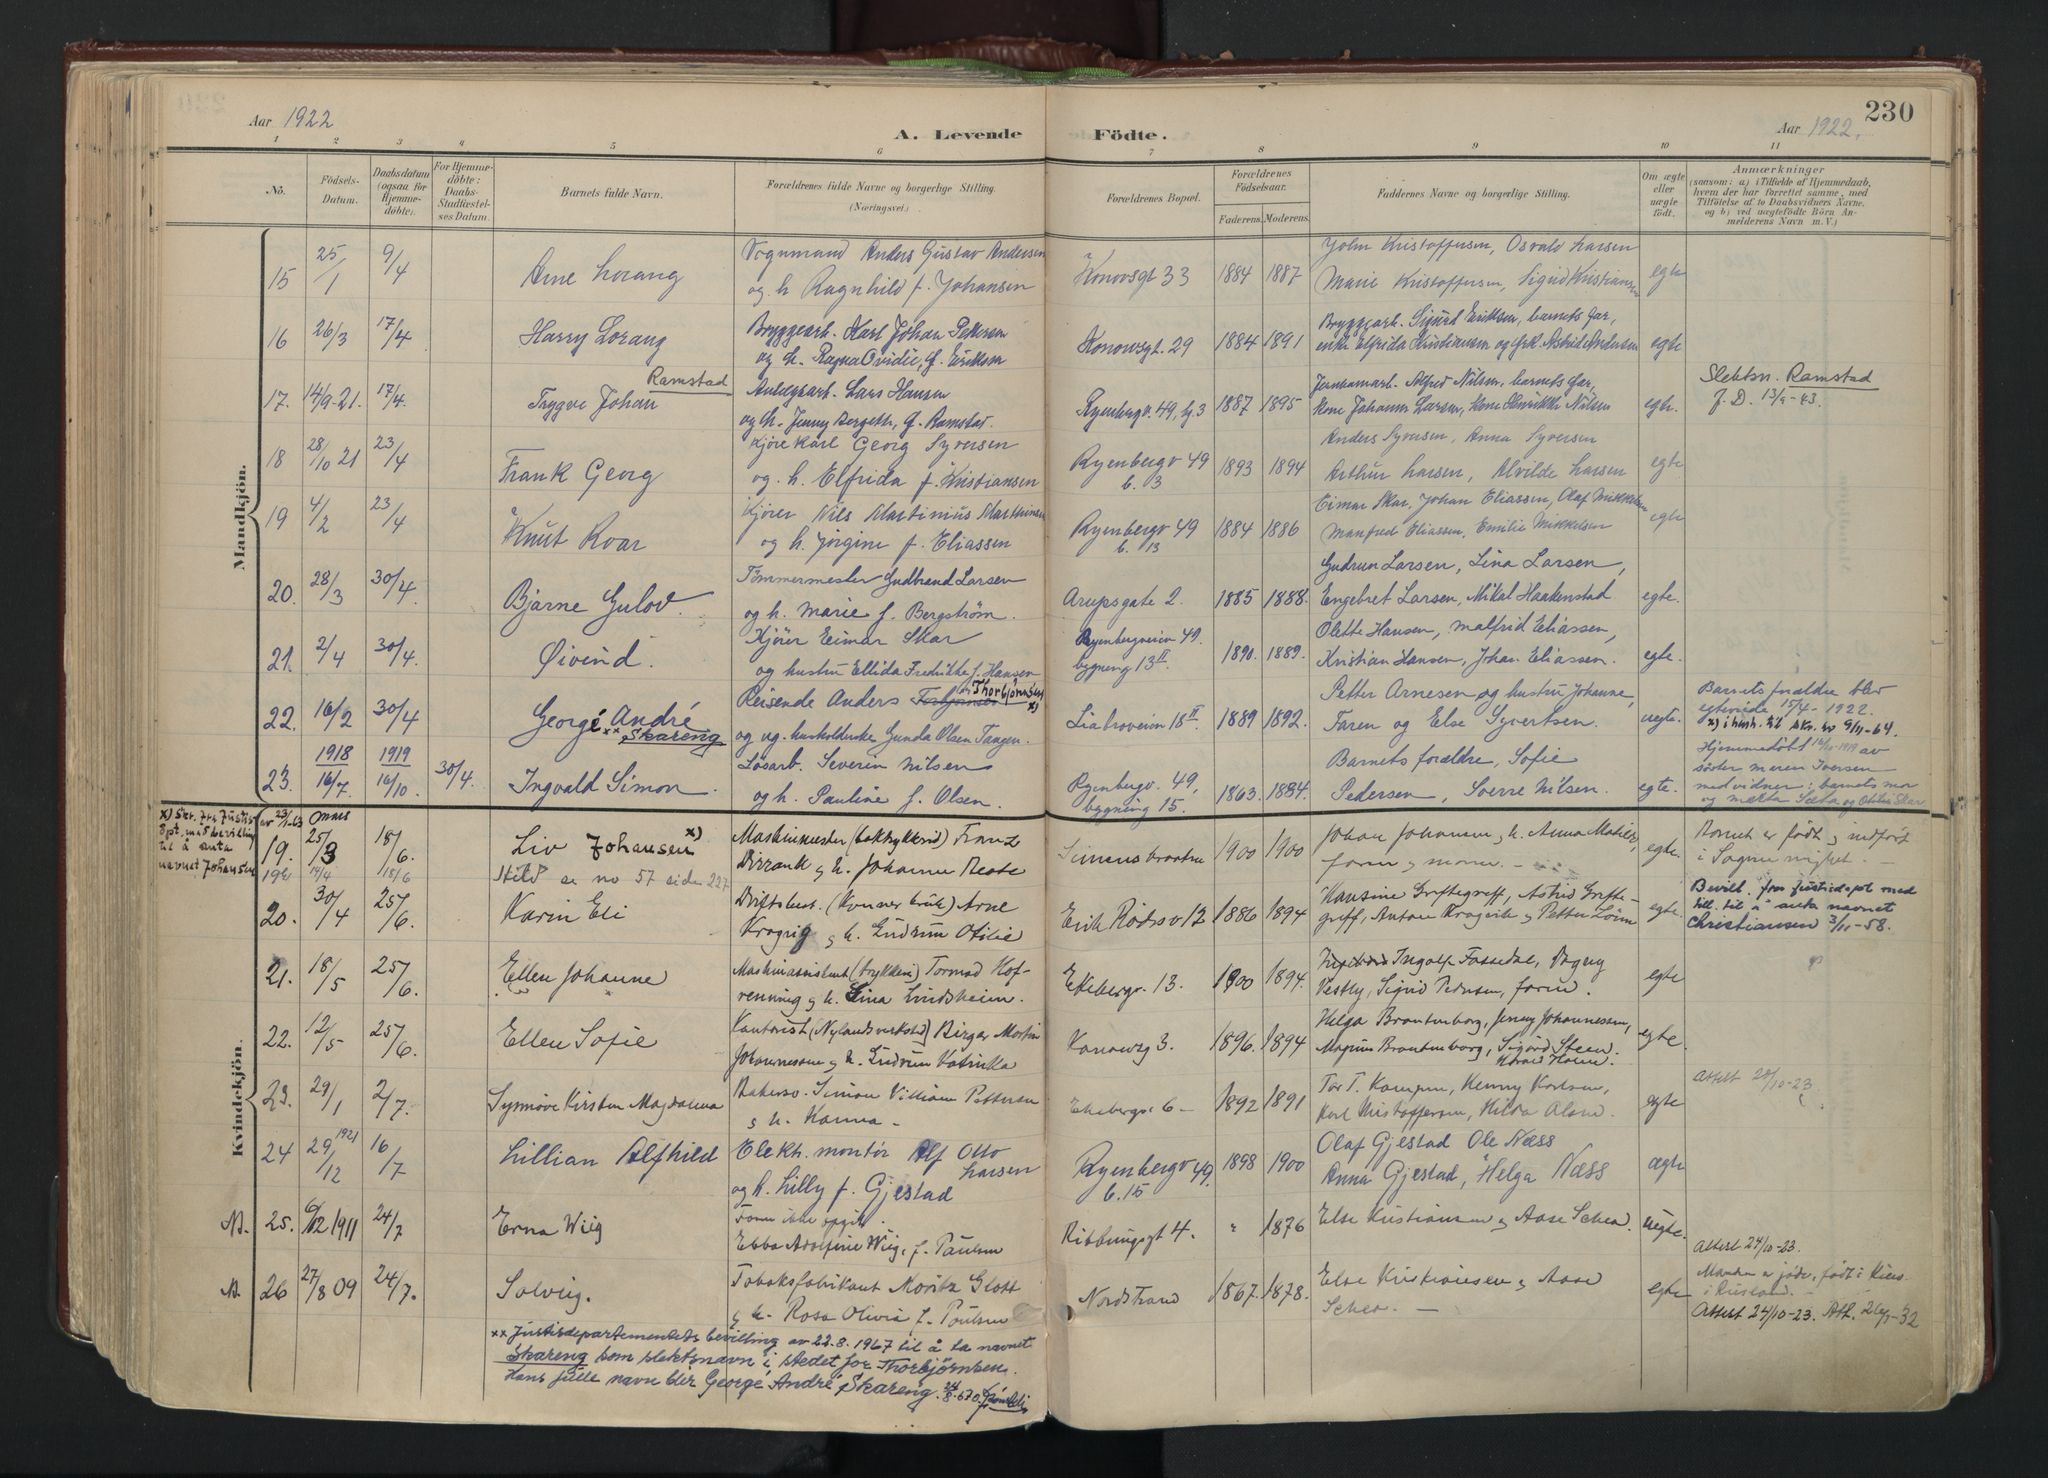 Aar 1922
A. Levende Födte.
230
Aar 1922.
1 2 3 4 5 6 7 8 9 10 11
No.
Födsels-Datum.
Daabsdatum (ogsaa for Hjemme-döbte).
For Hjemme-döbte: Daabs-Stadfæstel-ses Datum.
Barnets fulde Navn.
Forældrenes fulde Navne og borgerlige Stilling.
(Næringsvei.)
Forældrenes Bopæl.
Forældrenes Födselsaar.
Faderens. Moderens.
Faddernes Navne og borgerlige Stilling.
Om ægte eller uægte födt.
Anmærkninger
(saasom: a) i Tilfælde af Hjemmedaab, hvem der har forrettet samme, med Tilföielse af to Daabsvidners Navne, og b) ved uægtefödte Börn An-melderens Navn m. V.)
Mandkjön.
15 25/1 9/4 Arne Lorang
Vognmand Anders Gustav Andersen
og h. Ragnhild f. Johansen
Konowsgt 33 1884 1887
John Kristoffersen, Osvald Larsen
Marie Kristoffersen, Sigrid Kristiansen
egte
16 26/3 17/4 Harry Lorang
Bryggearb. Karl Johan Pettersen
og h. Ragna Ovidie, f. Eriksen
Konowsgt. 29 1884 1891
Bryggearb. Sigurd Eriksen, barnets far,
enke Elfrida Kristiansen og frk. Astrid Andersen
egte
17. 14/9-21. 17/4. Trygve Johan Ramstad
Anlægsarb. Lars Hansen
og h. Jenny Bergeth, f. Ramstad.
Ryenbergv. 49, b. 3 1887 1895
Jernbanearb. Alfred Nilsen, barnets far,
Kone Johanne Larsen, Kone Henrikke Nilsen
egte.
Slektsn. Ramstad
J. D. 13/9-43.
18 28/10 21 23/4 Frank Georg
Kjöre Karl Georg Syversen
og. h. Elfrida f. Kristiansen
Ryenbergv 49
b. 3 1893 1894
Anders Syversen, Anna Syversen
Arthur Larsen, Alvilde Larsen
egte
19 4/2 23/4 Knut Roar
Kjører Nils Martinius Marthinsen
og h. Jørgine f. Eliassen
Ryenbergv 49
b. 13 1884 1886
Eimar Skar, Johan Eliassen, Olaf Mikkelsen
Manfred Eliassen, Emilie Mikkelsen
egte
20. 28/3 30/4. Bjarne Gulov.
Tömmermester Gudbrand Larsen
og h. Marie f. Bergström.
Arupsgate 2. 1885 1888.
Gudrun Larsen, Lina Larsen,
Engebret Larsen, Mikal Haakenstad
egte.
21. 2/4 30/4. Øivind.
Kjörer Eimar Skar
og hustru Ellida Fredrikke f. Hansen
Ryenbergveien 49.
bygning 13 II 1890. 1889.
Olette Hansen, Malfrid Eliassen,
Kristian Hansen, Johan Eliassen.
egte.
22. 16/2 30/4 George André
xx Skareng
Reisende Anders Torbjørnsen Thorbjörnsen x)
og ug. husholderske Gunda Olsen Tangen.
Liabroveien 18 II 1889 1892.
Petter Arnesen og hustru Johanne,
Faren og Else Syvertsen.
uegte.
Barnets forældre blev
egteviede 15/4-1922.
x) i henh. til skr. av 9/11-64.
1918 1919
23. 16/7. 16/10. 30/4. Ingvald Simon.
Lösarb. Severin Nilsen
og h. Pauline f. Olsen.
Ryenbergv. 49,
bygning 15. 1863. 1884.
Barnets forældre, Sofie
Pedersen, Sverre Nilsen.
egte.
Hjemmedöbt 16/10-1919 av
söster Maren Iversen
med vidner: barnets mor
og
Kvindekjön.
x) Skr. fra Justis
dpt. med bevilling
til å anta
navnet Johansen
av 23/1-63
19. 25/3 18/6. Liv Johansen x)
Maskinmester Franz
Dirrank & h. Johanne Beate
Simensbraaten 1900 1900
Johan Johansen, h. Anna Matilde,
faren og moren. -
egte.
Barnet er født og indført
i Sogne
19b 14/4 18/6 Hild se no 57 siden 227
20. 30/4 25/6. Karin Eli
Arne
Kragvig & h. Gudrun Otilie
Erik Rødsv 12 1886 1894
Hansine Griftegreff, Astrid Grifte-
greff, Antone Kragvik & Petter
egte.
Bevill. fra Justisdpt med
till. til å anta navnet
Christiansen 3/11-58.
21. 18/5 25/6. Ellen Johanne
Maskinassistent Tormod Hof-
renning & h. Lina Lindsheim.
Ekebergv. 13. 1900 1894.
Ingolf Fossedal, Dagny
Vestly, Sigrid Pedersen, faren.
egte
22. 12/5 25/6. Ellen Sofie
Kontorist (Nylands verksted) Birger Martin
Johannessen & h. Gudrun Katinka
Konowsg 3. 1896. 1894
Helga Brantenborg, Jenny Johannessen,
Magnus Brantenborg, Sigurd Steen.
egte.
23. 29/1 2/7. Synnöve Kirsten Magdalena
Bakersv. Simon Villiam Pettersen
& h. Hanna -
Ekebergv. 6 - 1892 1891
Tor T. Kampen, Henny Karlsen,
Karl Kristoffersen, Hilda Olsen.
egte
Attest 20/10-23.
24 29/12 1921 16/7 Lillian Alfhild
Elektr. montör Alf Otto Larsen
og h. Lilly f. Gjestad
Ryenbergv 49.
b. 15 1898 1900
Olaf Gjestad Ole Næss
Anna Gjestad, Helga Næss
ægte
N. 25. 6/12 1911 24/7 Erna Wiig
Faren ikke opgit.
Ebba Adolfine Wiig, f. Paulsen
Ribbungsgt 4. " 1876
Else Kristiansen & Aase Scheo.
uegte.
Attest 24/10-23.
N. 26 27/8 09 24/7. Solveig.
Tobaksfabrikant Moritz Glott
& h. Rosa Olivia f. Poulsen
Nordstrand 1867. 1878.
Else Kristiansen & Aase
Scheo. -
egte
Manden er jøde, født i Kiew
i Rusland. -
Attest 24/10-23.
xx Justisdepartementets bevilling av 22.8.1967 til å ta navnet
Skareng som slektsnavn i stedet for Thorbjørnsen.
Hans fulle navn blir George André Skareng.